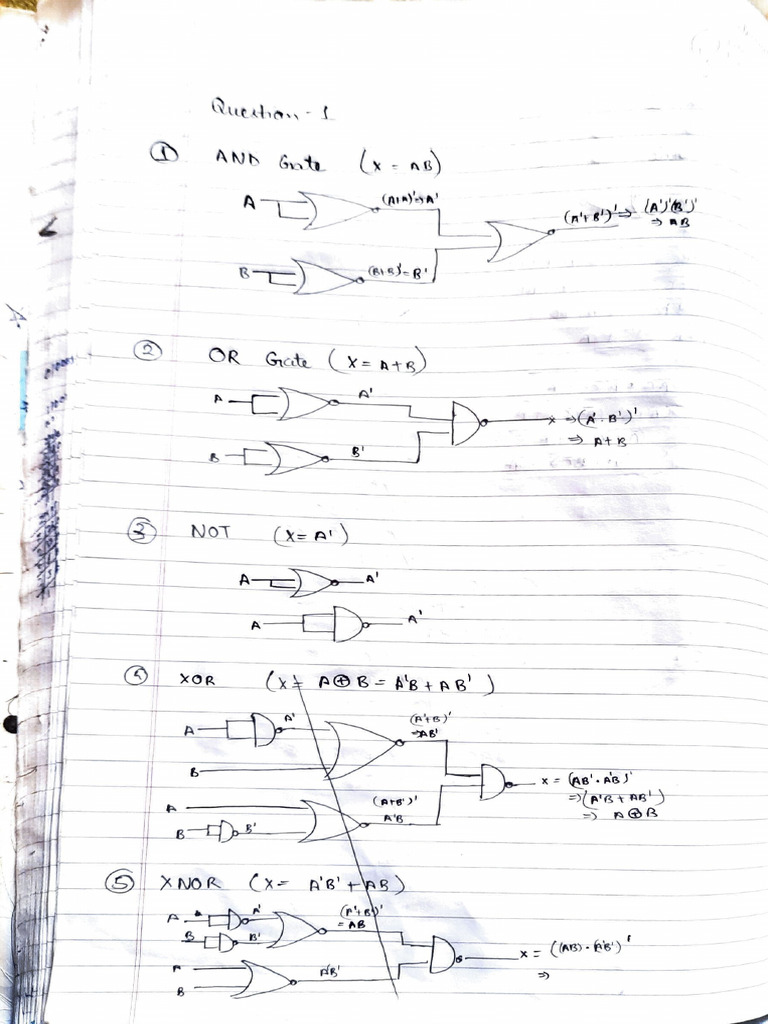 Question - 1
① AND Gate (X = AB)
A (A+A)'⇒A' (A'+B')' ⇒ (A')'(B')'
⇒ AB
B (B+B)'=B'
② OR Gate (X = A+B)
A A'
X ⇒ (A'·B')'
⇒ A+B
B B'
③ NOT (X = A')
A A'
A A'
④ XOR (X = A⊕B = A'B + AB')
A A' (A'+B)'
⇒AB'
B
X = (AB'·A'B)'
⇒ (A'B + AB')
⇒ A⊕B
A (A+B')'
B B' A'B
⑤ XNOR (X = A'B' + AB)
A A' (A'+B')'
= AB
B B'
X = ((AB)·(A'B')'
⇒
A A'B'
B